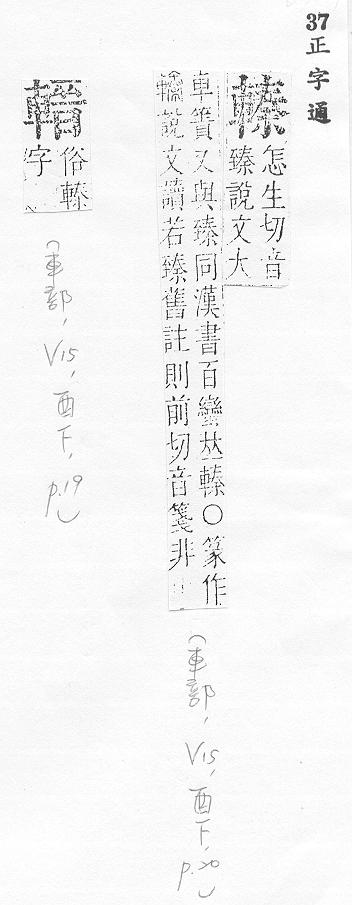 37正字通
轃
怎生切音
臻說文大
車簀又與臻同漢書百蠻𠀤轃〇篆作
說文讀若臻舊註則前切音箋非
(車部, V15, 酉下, p.20)
俗轃
字
(車部, V15, 酉下, p.19)